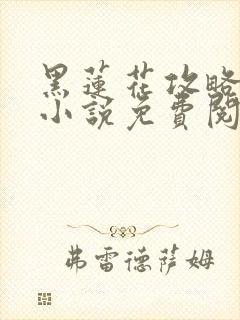 黑蓮花攻略
小說免費閱
弗雷德薩姆